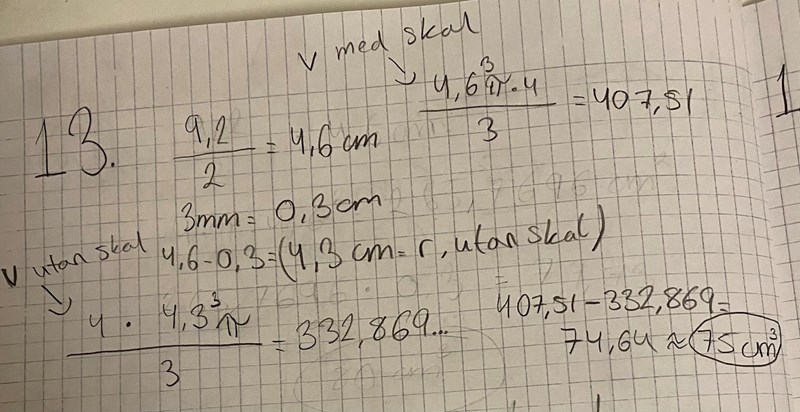 V med skal
13.
9,2/2 = 4,6 cm
4,6³π·4/3 = 407,51
3mm = 0,3cm
V utan skal
4,6-0,3=(4,3 cm=r, utan skal)
4·4,3³π/3 = 332,869...
407,51-332,869=
74,64≈75cm³
1